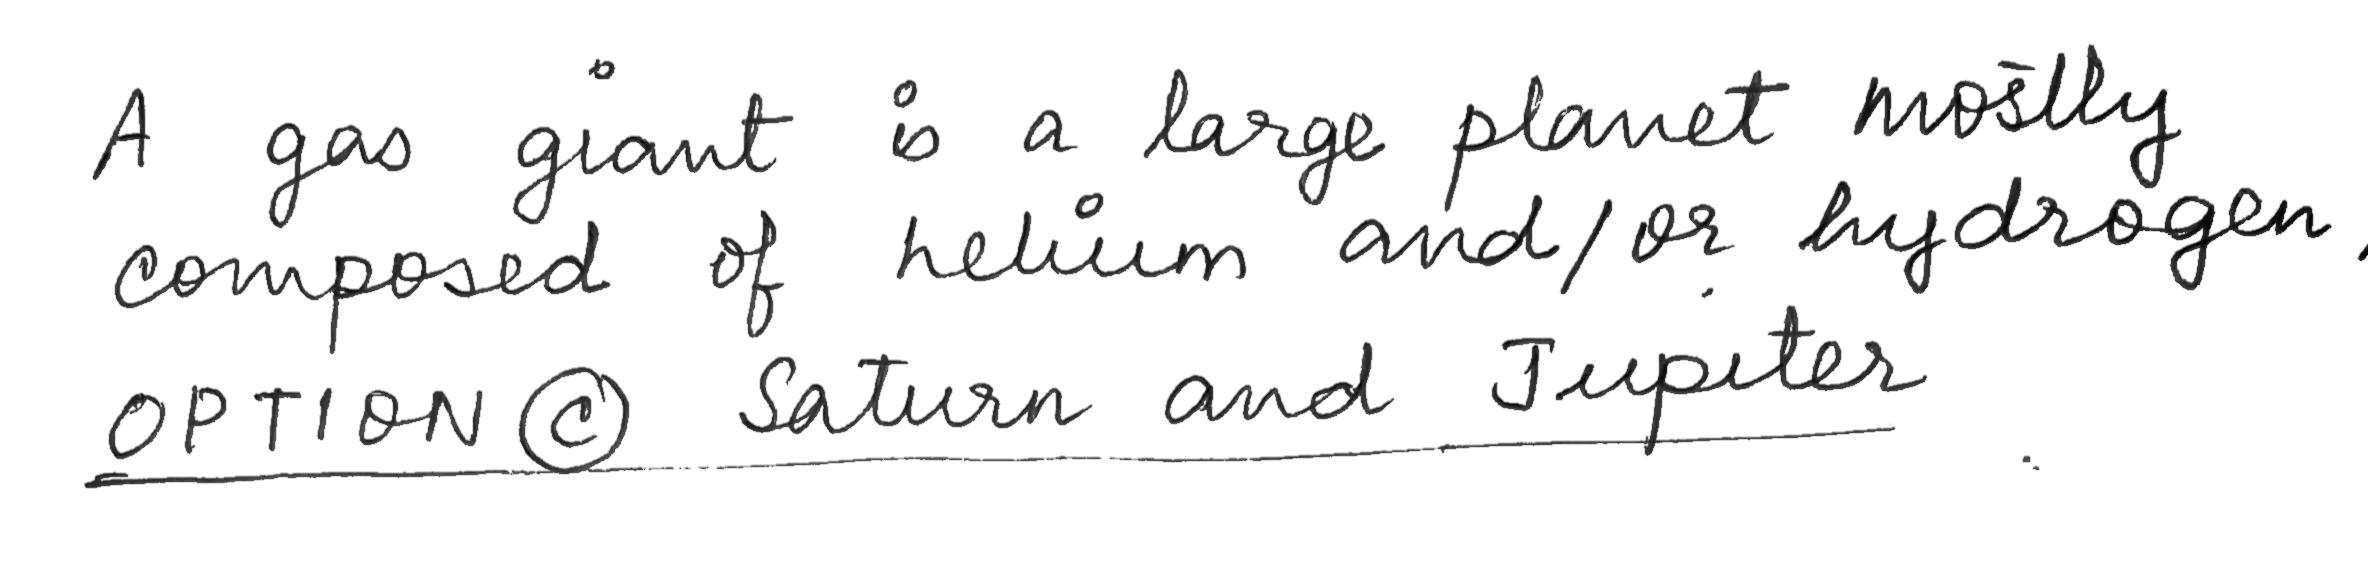 A gas giant is a large planet mostly
composed of helium and/or hydrogen.
OPTION (C) Saturn and Jupiter